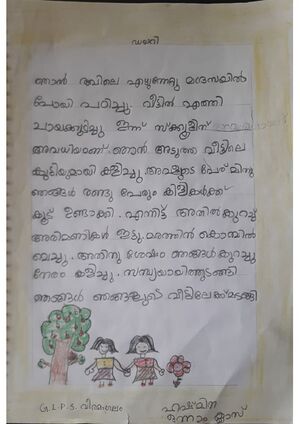 ഡയറി
ഞാൻ രവിലെ എഴുന്നേറ്റു മദ്രസയിൽ
പോയി പഠിച്ചു. വീട്ടിൽ എത്തി
ചായകുടിച്ചു ഇന്ന് സ്ക്കൂളിന്
അവധിയാണ്. ഞാൻ അടുത്ത വീട്ടിലെ
കുട്ടിയുമായി കളിച്ചു. അവളുടെ പേര് മിനു
ഞങ്ങൾ രണ്ടു പേരും കിളികൾക്ക്
കൂട് ഉണ്ടാക്കി. എന്നിട്ട് അതിൽ കുറച്ച്
അരിമണികൾ ഇട്ടു. മരത്തിൻ കൊമ്പിൽ
വെച്ചു. അതിനു ശേഷം ഞങ്ങൾ കുറച്ചു
നേരം കളിച്ചു. സന്ധ്യയായിതുടങ്ങി
ഞങ്ങൾ ഞങ്ങളുടെ വീട്ടിലേക്ക് മടങ്ങി
G.L.P.S. വീരമംഗലം
ഹഷ്മിന
ഒന്നാം ക്ലാസ്